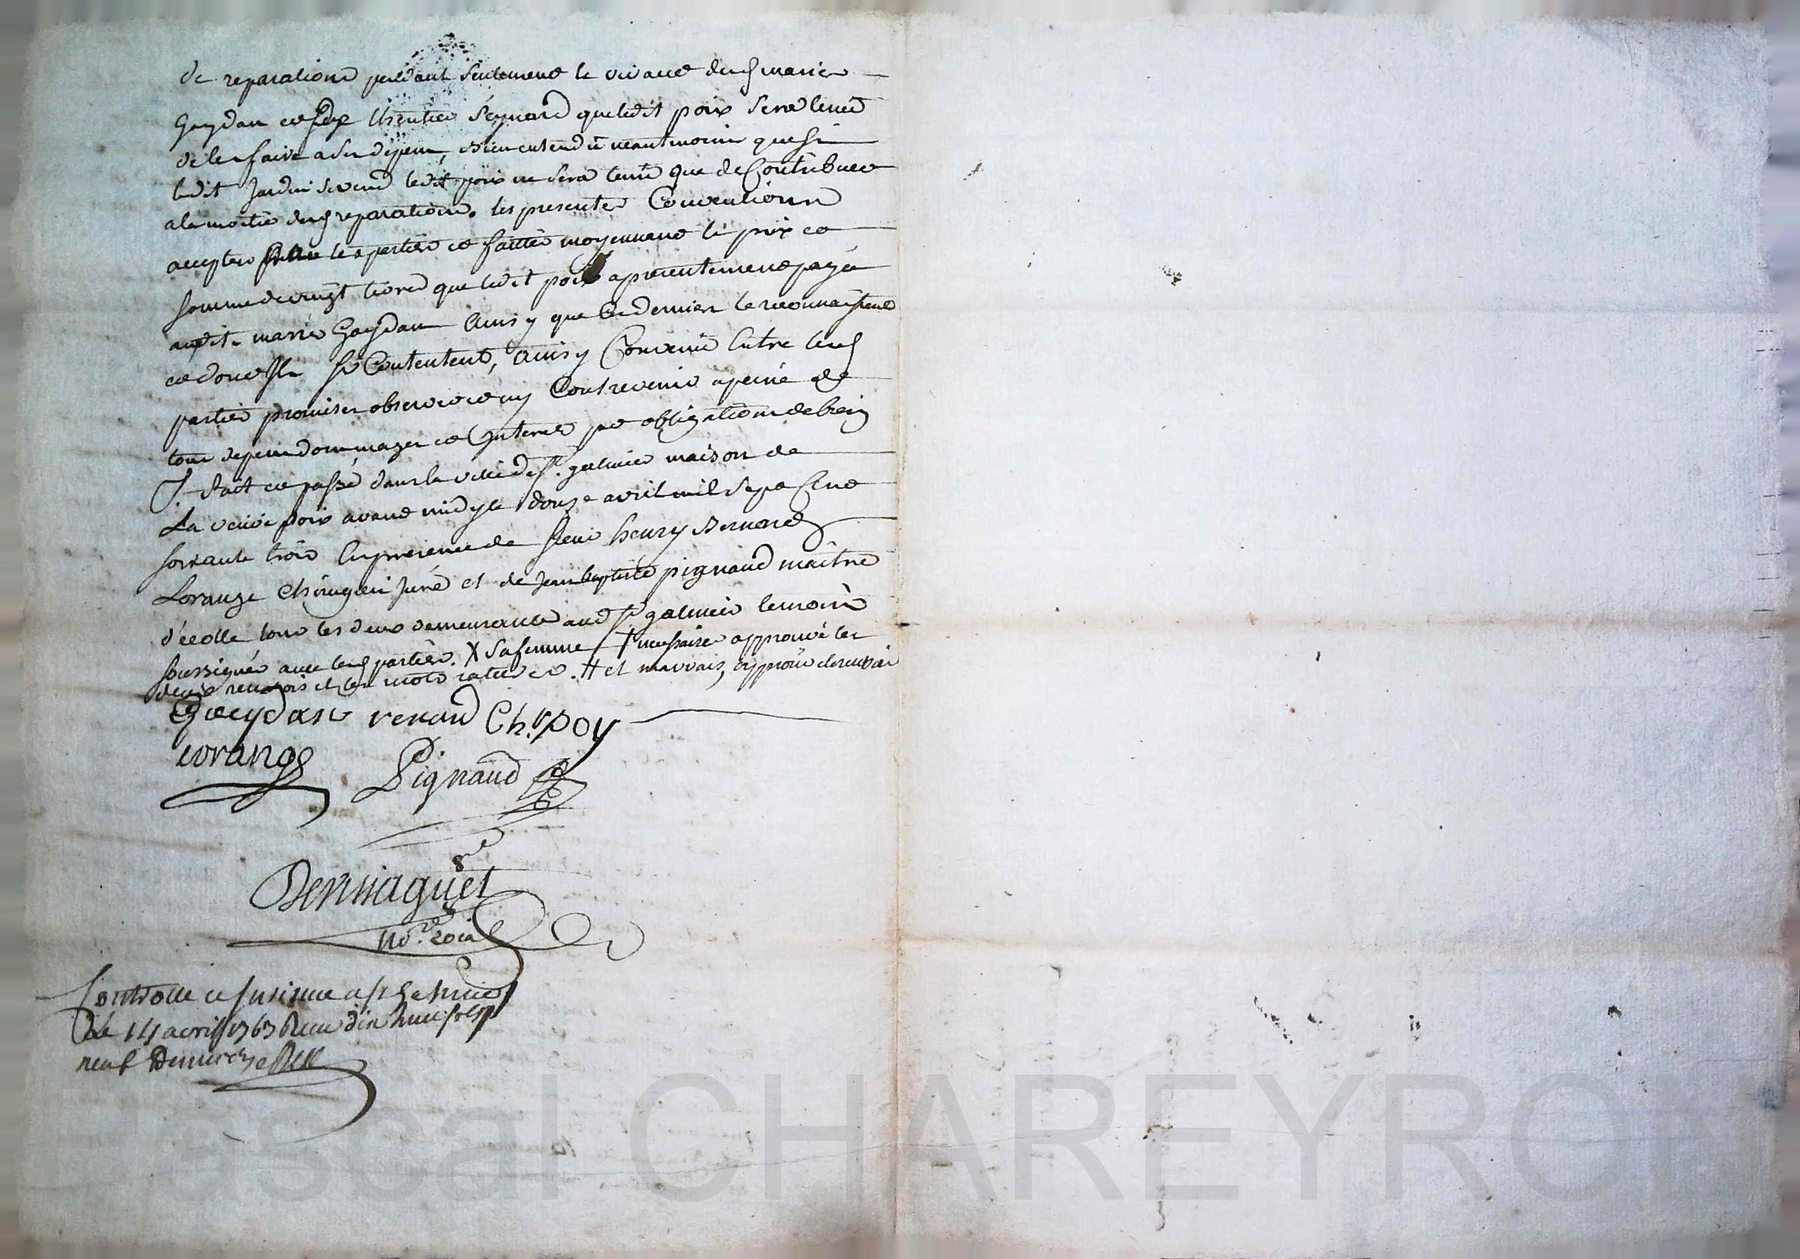 de reparations pendant seulement le vivant dud marie
Gaydan et Renard que ledit poix sera tenu
de les faire a ses depens, Bien entendu neantmoins que si
ledit Jardin se vend ledit poix ne sera tenu que de Contribuer
a la moitié desd reparations. les presentes Conventions
acceptées les parties et faittes moyennant le prix et
somme de vingt livres que ledit poix a presentement payé
audit marie Gaydan Ainsy que Ce dernier le reconnaît
et dont Il se Contentent, Ainsy Convenu Entre lesd
parties promises observer et ny Contrevenir a peine de
tous depens dommages et Interets par obligation de biens
fait et passé dans la ville de St. galmier maison de
La veuve poix avant midy le douze avril mil Sept Cent
soixante trois En presence de Sieur henry Bernard
Lorange Chirugien Juré et de Jean baptiste pignaud maître
d'écolle tous les deux demeurants aud St. galmier temoins
soussignés avec lesd parties. X sa femme / + necessaires approuvé les
deux renvois et les mots raturés. ++ et mauvais, approuvé
Gaeydan renard Ch. poy
Lorange
Pignaud
Denniaguet
No.re roial
Controllé et Insinué a St Galmier
le 14 avril 1763 Receu dix huit sols
neuf Deniers
Pascal CHAREYRON